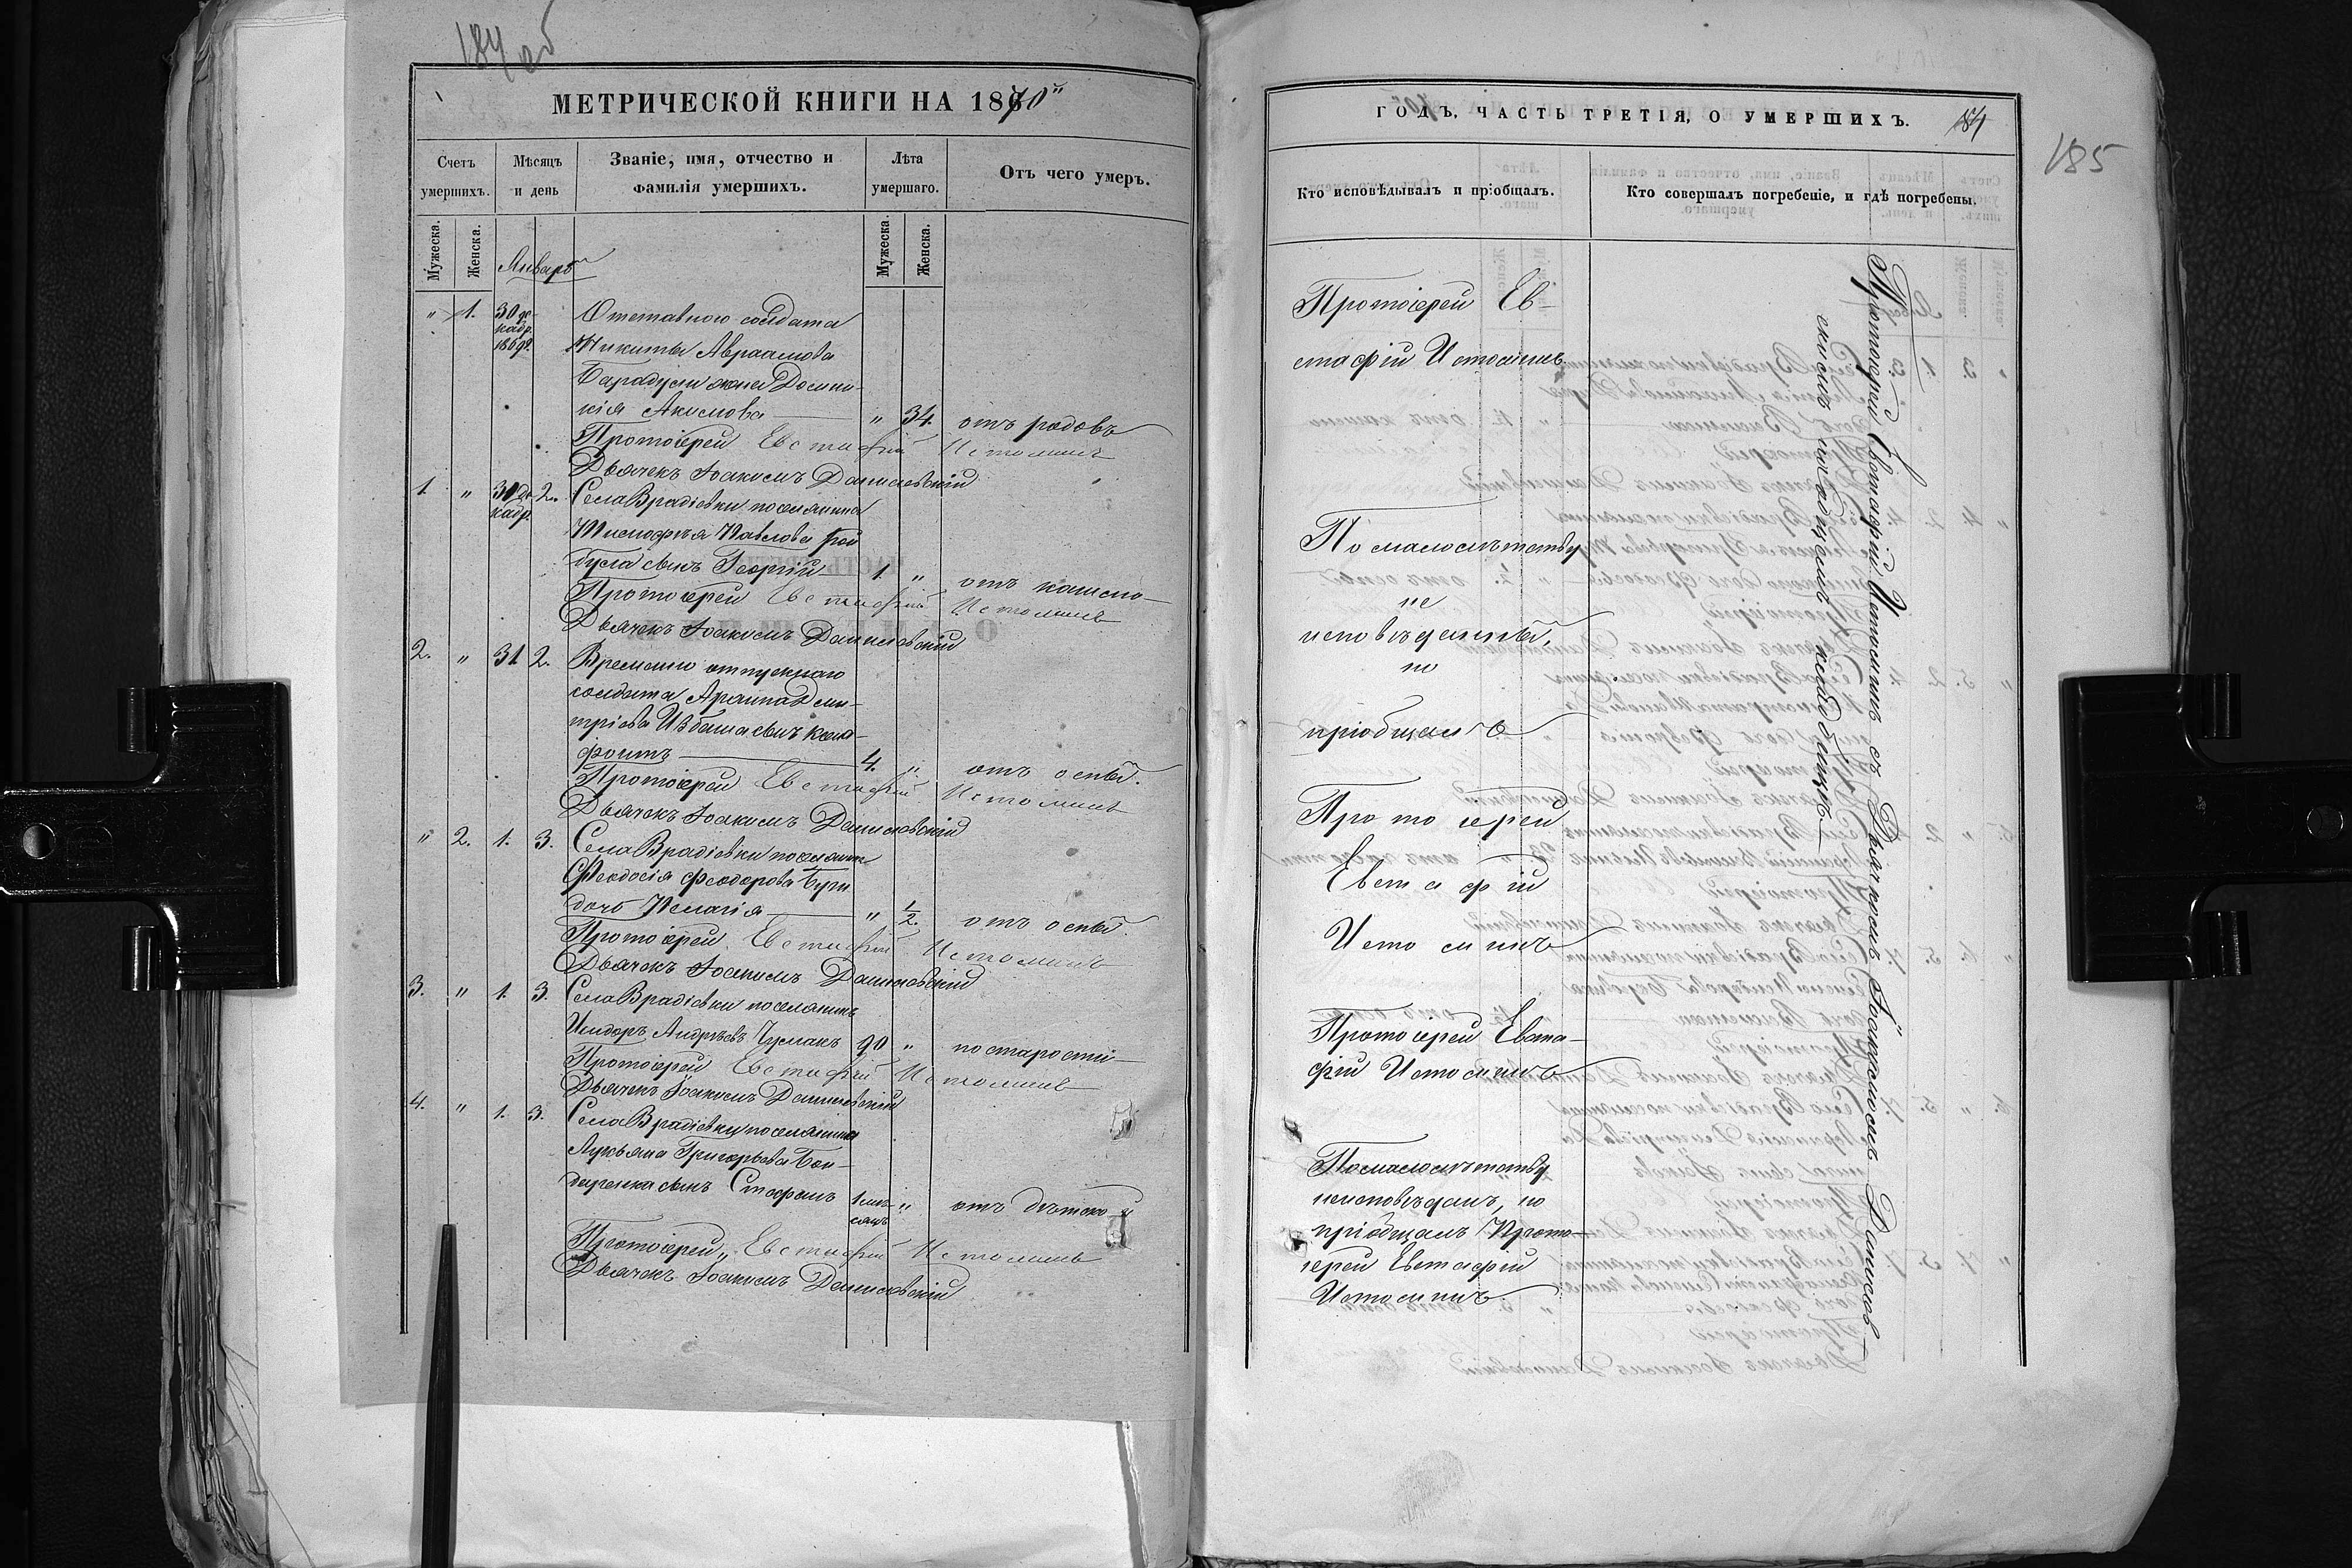 184 об
МЕТРИЧЕСКОЙ КНИГИ НА 1870й
Счетъ умершихъ.
Мѣсяцъ и день
Званіе, имя, отчество и фамилія умершихъ.
Лѣта умершаго.
Отъ чего умеръ.
Мужеска.
Женска.
Январь
Мужеска.
Женска.
" 1. 30 де- Отставного солдата
кабр. 1869. Никиты Авраамова
жена Домни-
кія Акимова " 34. отъ родовъ
Протоіерей Евстафій Истоминъ
Дьячекъ Іоакимъ Данилевскій
1. " 30 де- 2. Села Врадіевки поселянина
кабр. Тимофея Павлова
сынъ Георгій 1. " отъ кашлю
Протоіерей Евстафій Истоминъ
Дьячекъ Іоакимъ Данилевскій
2. " 31 2. Временно отпускнаго
солдата Дми-
тріева сынъ Ксено-
фонтъ 4. " отъ оспы.
Протоіерей Евстафій Истоминъ
Дьячекъ Іоакимъ Данилевскій
" 2. 1. 3. Села Врадіевки поселян.
Феодосія Феодорова
дочь Пелагія " 1/2. отъ оспы.
Протоіерей Евстафій Истоминъ
Дьячекъ Іоакимъ Данилевскій
3. " 1. 3. Села Врадіевки поселянинъ
Исидоръ Андреевъ Чумакъ 90 " по старости
Протоіерей Евстафій Истоминъ
Дьячекъ Іоакимъ Данилевскій
4. " 1. 3. Села Врадіевки поселянина
Лукьяна Григорьева Бон-
даренка сынъ Стефанъ 1 мѣ- " отъ дѣтской
сяцъ
Протоіерей Евстафій Истоминъ
Дьячекъ Іоакимъ Данилевскій
ГОДЪ, ЧАСТЬ ТРЕТІЯ, О УМЕРШИХЪ.
184
185
Кто исповѣдывалъ и пріобщалъ.
Кто совершалъ погребеніе, и гдѣ погребены.
Протоіерей Ев-
стафій Истоминъ
По малолѣтству
не
исповѣданны,
но
пріобщалъ
Протоіерей
Евстафій
Истоминъ
Протоіерей Евста-
фій Истоминъ
По малолѣтству
неисповѣданъ, но
пріобщалъ Прото-
іерей Евстафій
Истоминъ.
Протоіерей Евстафій Истоминъ съ Дьячкомъ Іоакимомъ Данилев-
скимъ на общемъ кладбищѣ